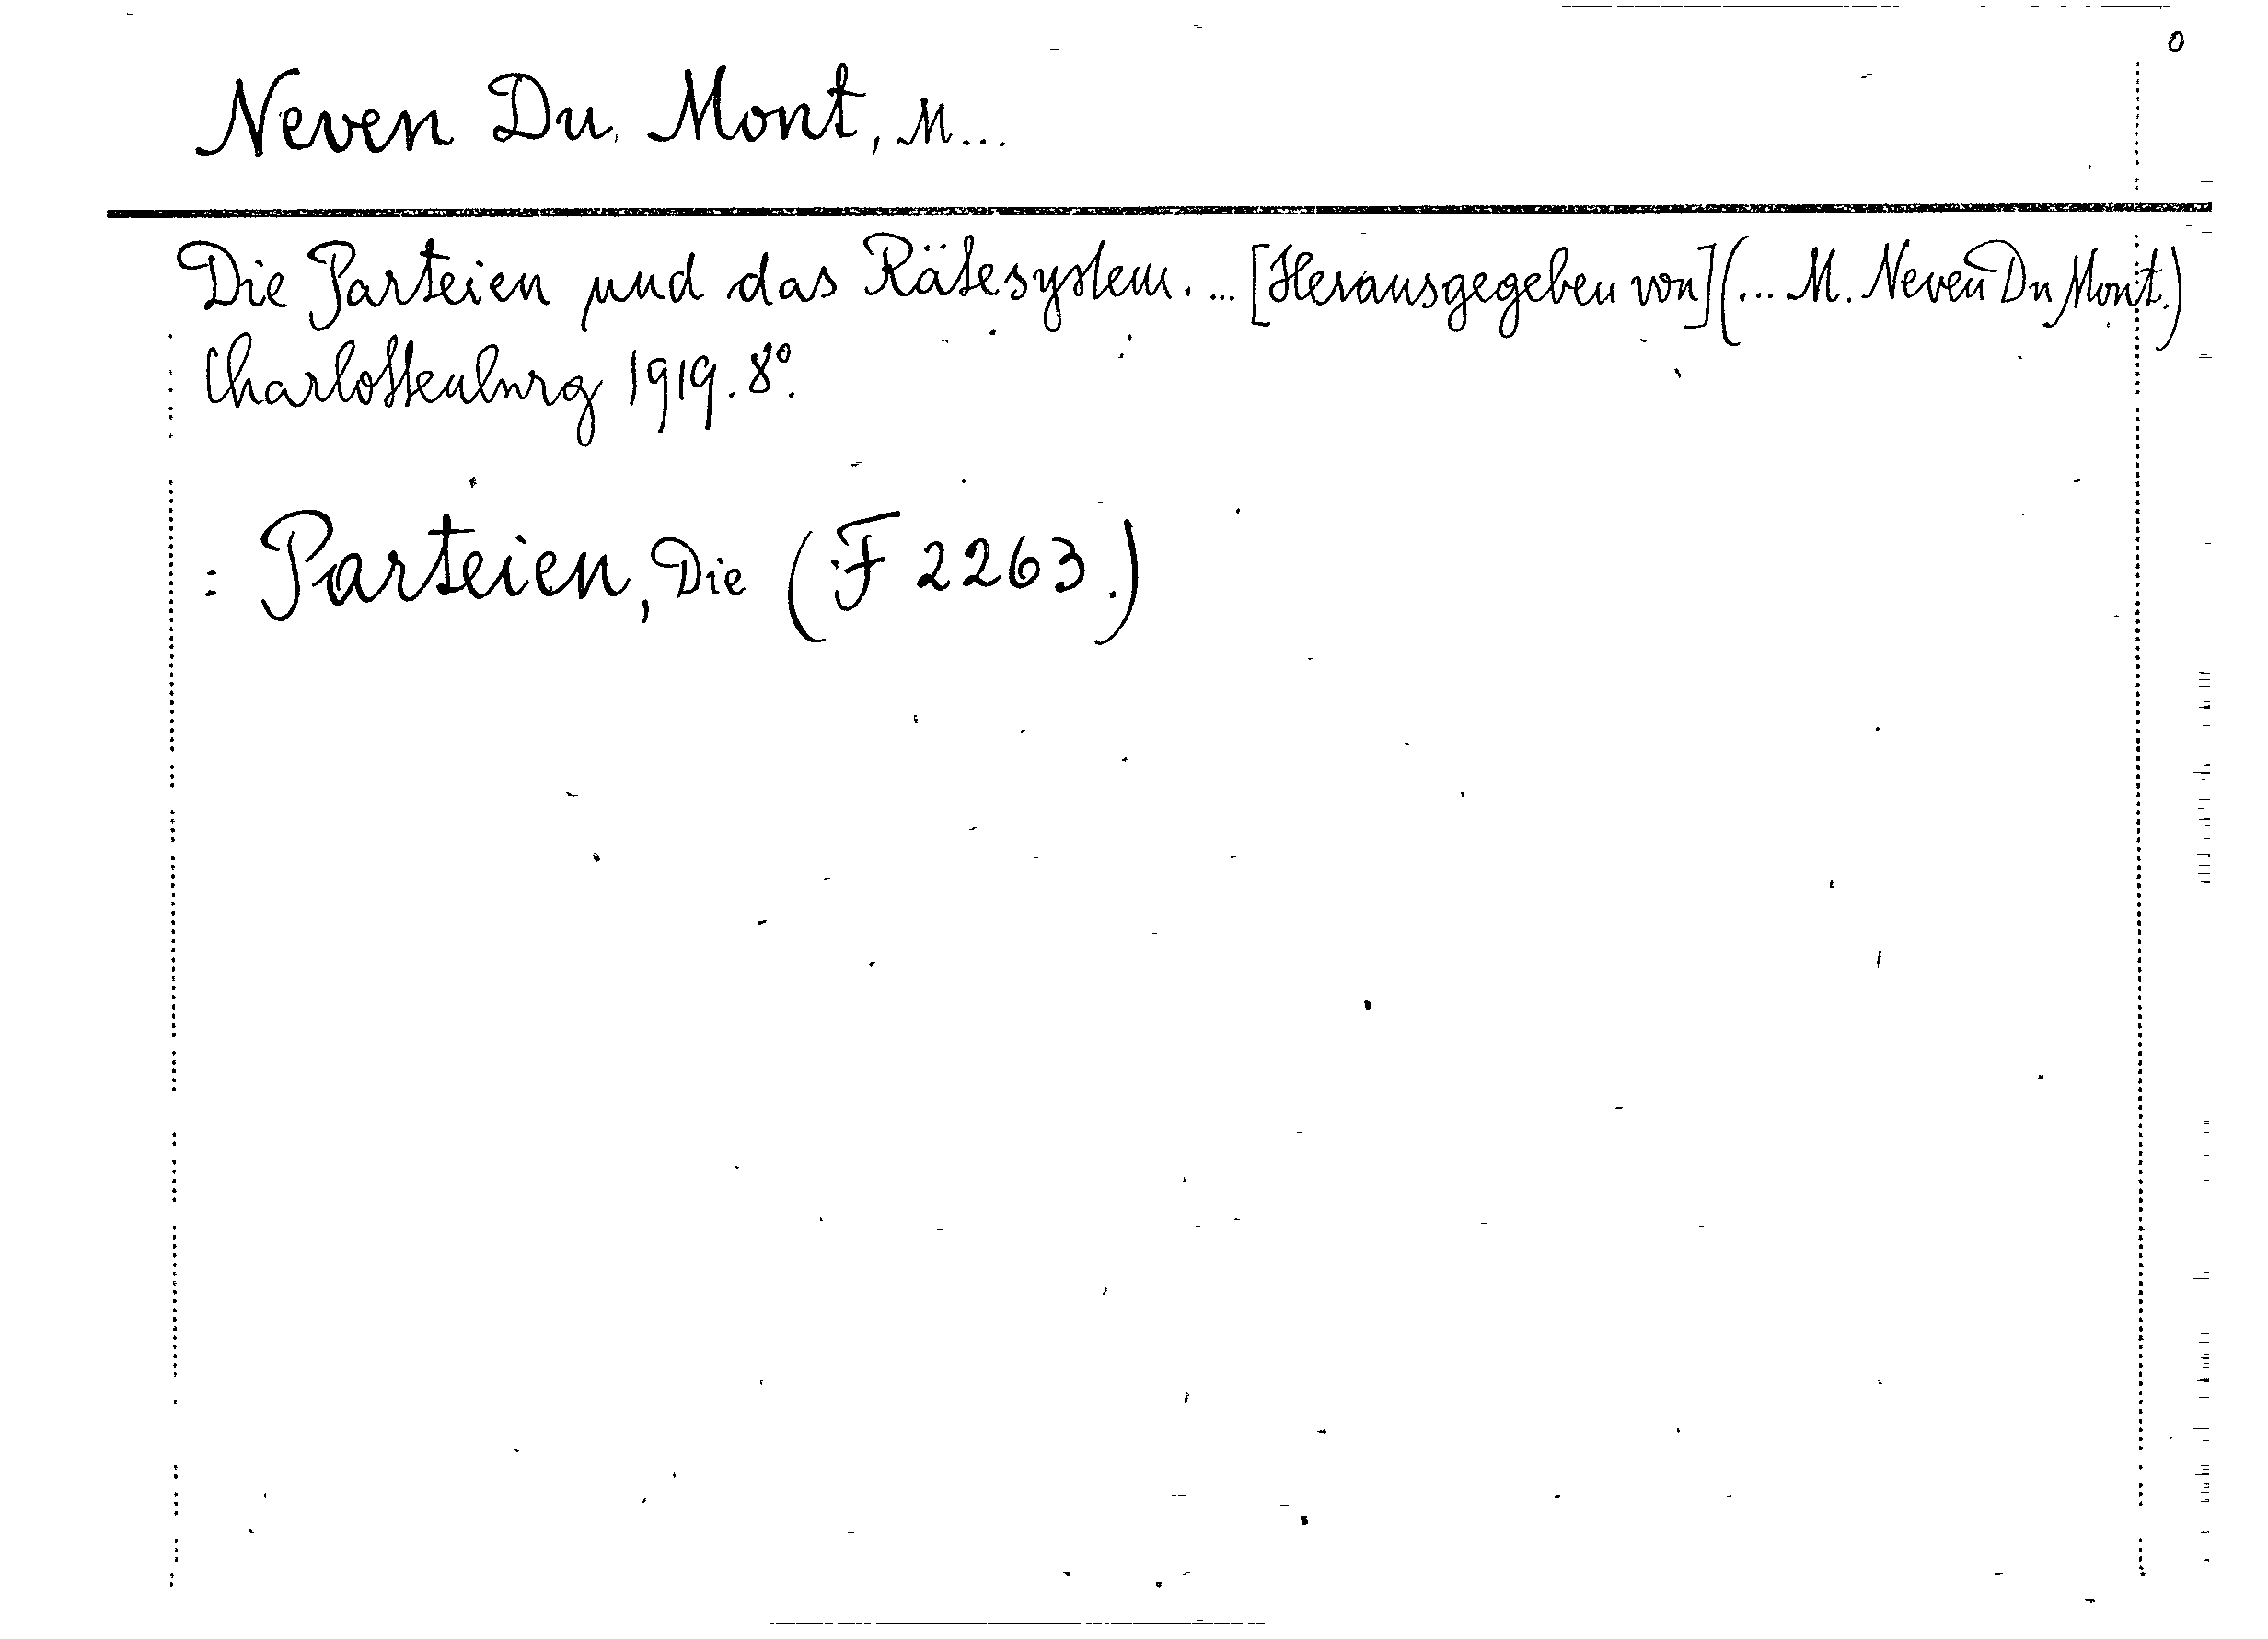 0
Neven Du Mont, M...
Die Parteien und das Rätesystem. ... [Herausgegeben von] (... M. Neven Du Mont.)
Charlottenburg 1919. 8°.
= Parteien, Die (F 2263.)